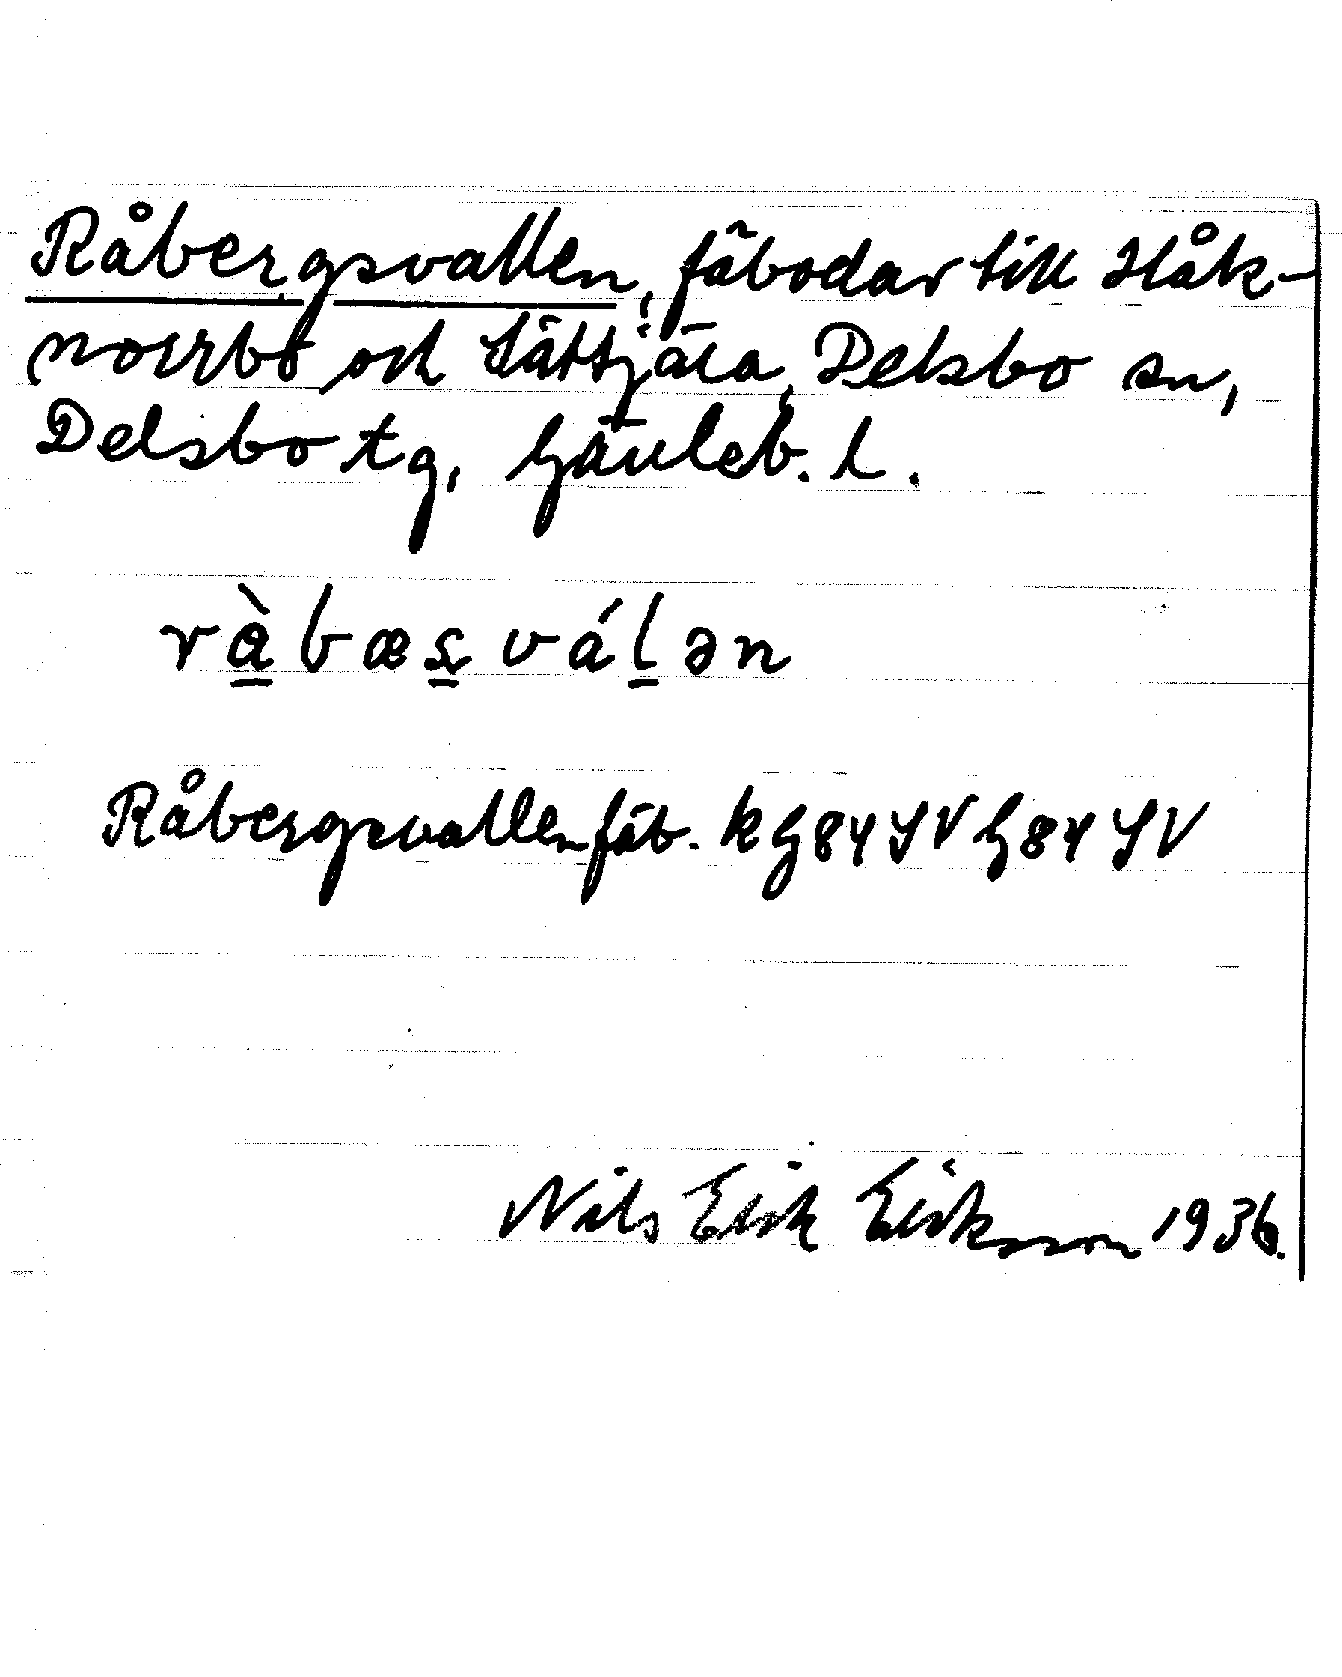 Råbergsvallen, fäbodar till Håk-
norrbo och Tättjära, Delsbo sn,
Delsbo tg, Gävleb. l.
ràbæs̱váḻən
Råbergsvallen fäb. k G84 SV G84 SV
Nils Erik Eriksson 1936.